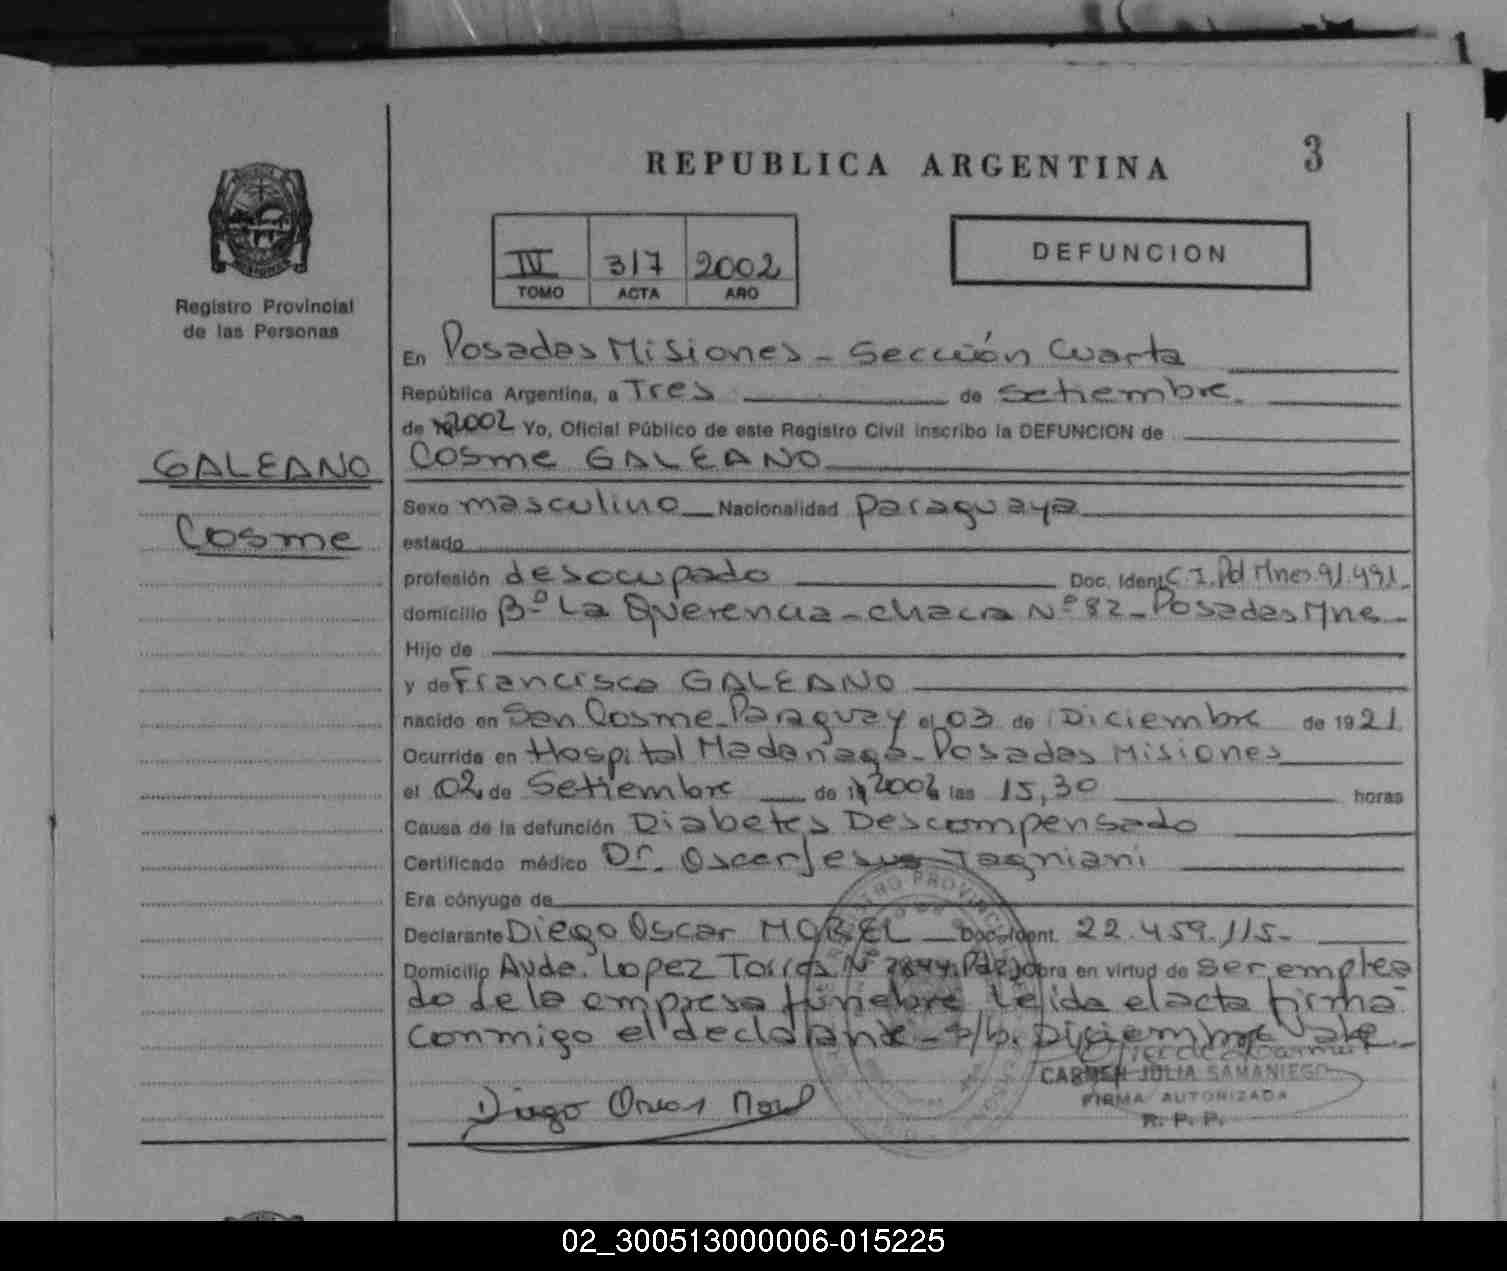 REPUBLICA ARGENTINA
3
Registro Provincial
de las Personas
IV 317 2002
TOMO ACTA AÑO
DEFUNCION
En Posadas Misiones - Sección Cuarta
República Argentina, a Tres de Setiembre
de 2002 Yo, Oficial Público de este Registro Civil inscribo la DEFUNCION de
GALEANO
Cosme
Cosme GALEANO
Sexo masculino Nacionalidad Paraguaya
estado
profesión desocupado Doc. Ident. C.I. Pol Mnes 91.491
domicilio Bº La Querencia - chacra Nº 82 - Posadas Mnes
Hijo de
y de Francisca GALEANO
nacido en San Cosme - Paraguay el 03 de Diciembre de 1921
Ocurrida en Hospital Madariaga - Posadas Misiones
el 02 de Setiembre de 2002 a las 15,30 horas
Causa de la defunción Diabetes Descompensado
Certificado médico Dr. Oscar Jesus Tagniani
Era cónyuge de
Declarante Diego Oscar MOREL Doc. Ident. 22.459.115-
Domicilio Avda. Lopez Torres Nº obra en virtud de ser emplea
do de la empresa funebre Leida el acta firma
conmigo el declarante - s/b. Diciembre Vale.
Diego Oscar Morel
CARMEN JULIA SAMANIEGO
FIRMA AUTORIZADA
R. P. P.
02_300513000006-015225